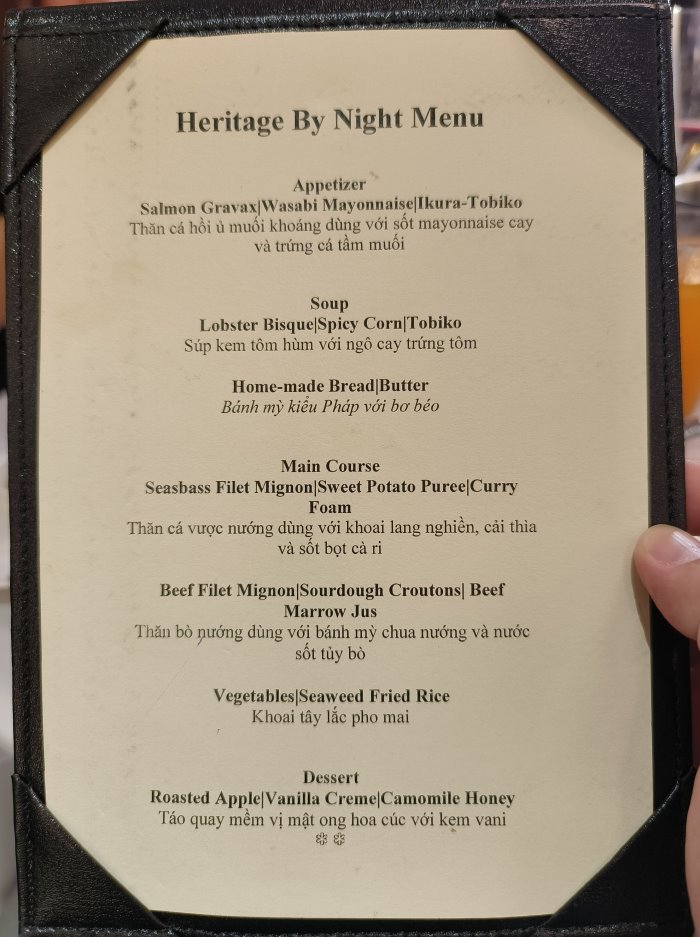 Heritage By Night Menu
Appetizer
Salmon Gravax|Wasabi Mayonnaise|Ikura-Tobiko
Thăn cá hồi ủ muối khoáng dùng với sốt mayonnaise cay
và trứng cá tầm muối
Soup
Lobster Bisque|Spicy Corn|Tobiko
Súp kem tôm hùm với ngô cay trứng tôm
Home-made Bread|Butter
Bánh mỳ kiểu Pháp với bơ béo
Main Course
Seasbass Filet Mignon|Sweet Potato Puree|Curry
Foam
Thăn cá vược nướng dùng với khoai lang nghiền, cải thìa
và sốt bọt cà ri
Beef Filet Mignon|Sourdough Croutons| Beef
Marrow Jus
Thăn bò nướng dùng với bánh mỳ chua nướng và nước
sốt tủy bò
Vegetables|Seaweed Fried Rice
Khoai tây lắc pho mai
Dessert
Roasted Apple|Vanilla Creme|Camomile Honey
Táo quay mềm vị mật ong hoa cúc với kem vani